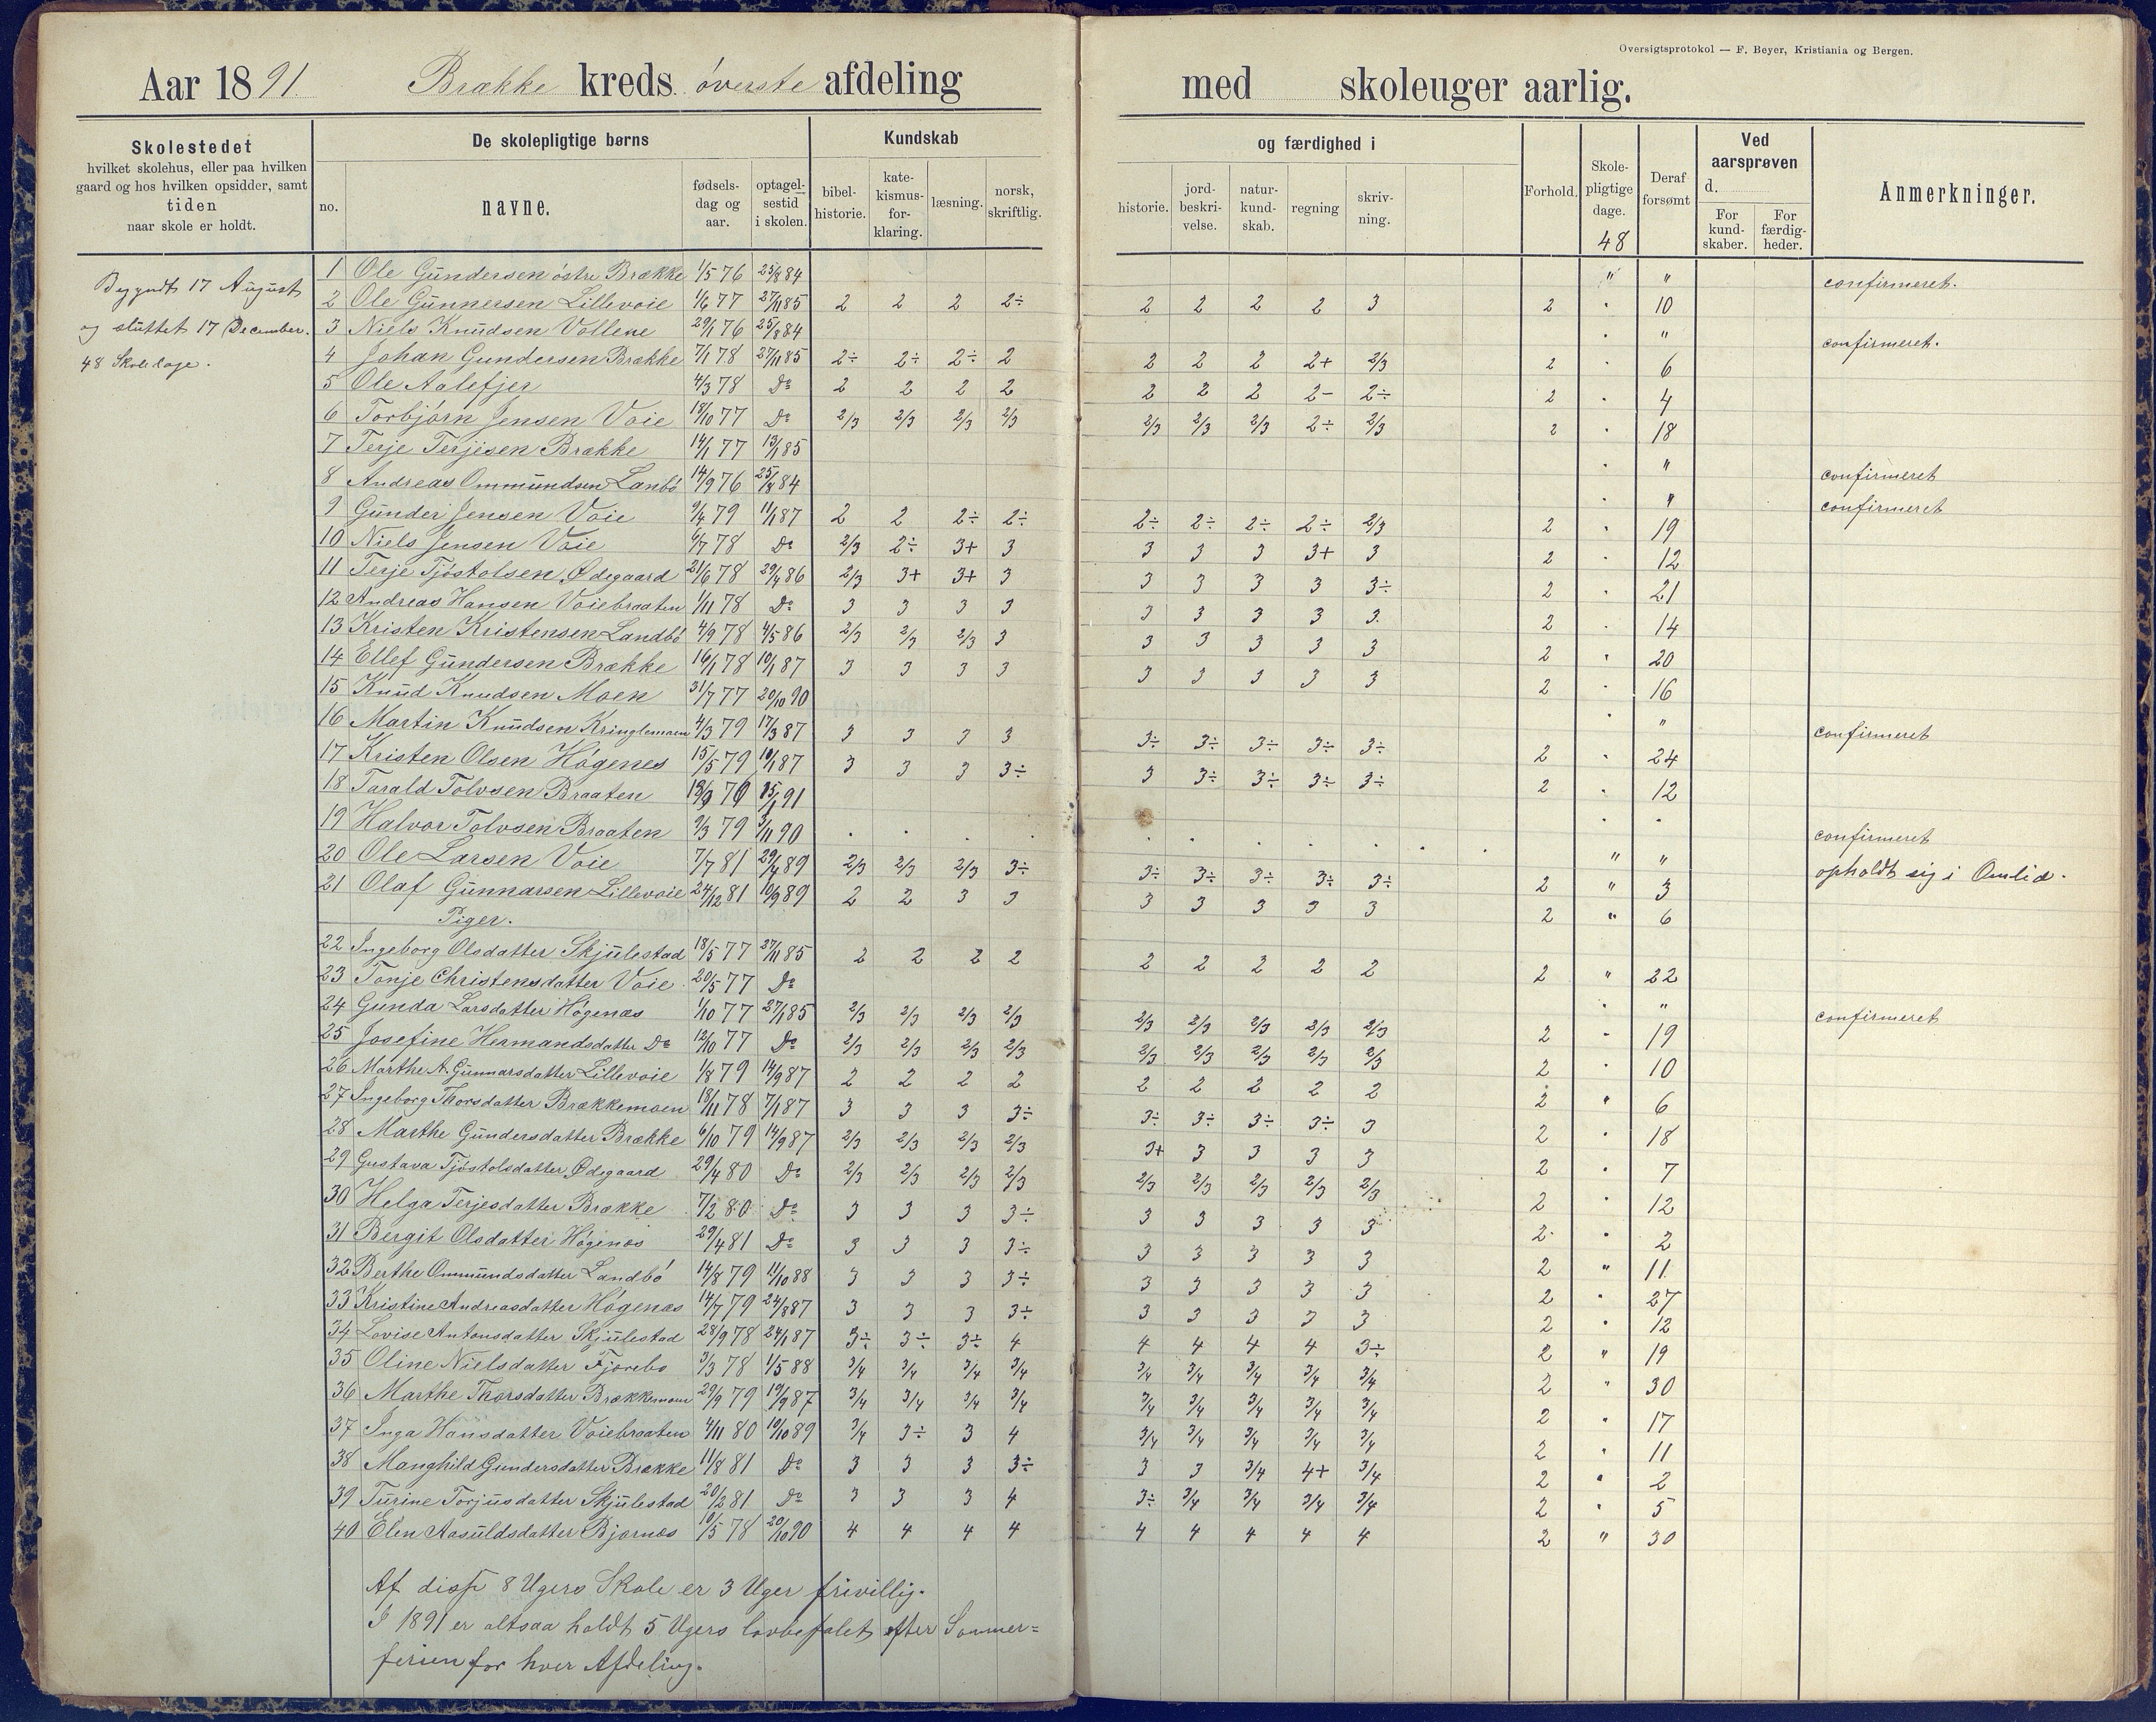 Oversigtsprotokol — F. Beyer, Kristiania og Bergen.
Aar 1891. Brække kreds øverste afdeling med skoleuger aarlig.
Skolestedet
hvilket skolehus, eller paa hvilken
gaard og hos hvilken opsidder, samt
tiden
naar skole er holdt.
De skolepligtige børns
no. navne. fødsels-dag og aar. optagel-sestid i skolen.
Kundskab og færdighed i
bibel-historie. kate-kismus-for-klaring. læsning. norsk, skriftlig. historie. jord-beskri-velse. natur-kund-skab. regning skriv-ning.
Forhold. Skole-pligtige dage. 48 Deraf forsømt
Ved aarsprøven d.
For kund-skaber. For færdig-heder.
Anmerkninger.
Begyndt 17 August
og sluttet 17 December.
48 Skoledage.
1 Ole Gundersen østre Brække 1/5 76 25/8 84 " " confirmeret.
2 Ole Gunnersen Lillevoie 1/6 77 27/11 85 2 2 2 2÷ 2 2 2 2 3 2 " 10
3 Niels Knudsen Vollene 29/1 76 25/8 84 " " confirmeret.
4 Johan Gundersen Brække 7/1 78 27/11 85 2÷ 2÷ 2÷ 2 2 2 2 2+ 2/3 2 " 6
5 Ole Aalefjer 4/3 78 Do 2 2 2 2 2 2 2 2- 2÷ 2 " 4
6 Torbjørn Jensen Voie 18/10 77 Do 2/3 2/3 2/3 2/3 2/3 2/3 2/3 2÷ 2/3 2 " 18
7 Terje Terjesen Brække 14/1 77 13/1 85 " " confirmeret
8 Andreas Ommundsen Lanbø 14/9 76 25/8 84 " " confirmeret
9 Gunder Jensen Voie 9/4 79 11/1 87 2 2 2÷ 2÷ 2÷ 2÷ 2÷ 2÷ 2/3 2 " 19
10 Niels Jensen Voie 6/7 78 Do 2/3 2÷ 3+ 3 3 3 3 3+ 3 2 " 12
11 Terje Tjøstolsen Ødegaard 21/6 78 29/4 86 2/3 3+ 3+ 3 3 3 3 3 3÷ 2 " 21
12 Andreas Hansen Voiebraaten 1/11 78 Do 3 3 3 3 3 3 3 3 3 2 " 14
13 Kristen Kristensen Landbø 4/9 78 4/5 86 2/3 2/3 2/3 3 3 3 3 3 3 2 " 20
14 Ellef Gundersen Brække 16/1 78 10/1 87 3 3 3 3 3 3 3 3 3 2 " 16
15 Knud Knudsen Moen 31/7 77 20/10 90 " " confirmeret
16 Martin Knudsen Kringlemoen 4/3 79 17/3 87 3 3 3 3 3÷ 3÷ 3÷ 3÷ 3÷ 2 " 24
17 Kristen Olsen Høgenes 15/5 79 10/1 87 3 3 3 3÷ 3 3÷ 3÷ 3÷ 3÷ 2 " 12
18 Tarald Tolvsen Braaten 91 " " confirmeret
19 Halvor Tolvsen Braaten 9/3 79 3/11 90 " " opholdt sig i Omlid.
20 Ole Larsen Voie 7/7 81 29/4 89 2/3 2/3 2/3 3÷ 3÷ 3÷ 3÷ 3÷ 3÷ 2 " 3
21 Olaf Gunnarsen Lillevoie 24/12 81 10/9 89 2 2 3 3 3 3 3 3 3 2 " 6
Piger.
22 Ingeborg Olsdatter Skjulestad 18/5 77 27/11 85 2 2 2 2 2 2 2 2 2 2 " 22
23 Tonje Christensdatter Voie 20/5 77 Do " " confirmeret
24 Gunda Larsdatter Høgenæs 1/10 77 27/1 85 2/3 2/3 2/3 2/3 2/3 2/3 2/3 2/3 2/3 2 " 19
25 Josefine Hermandsdatter Do 12/10 77 Do 2/3 2/3 2/3 2/3 2/3 2/3 2/3 2/3 2/3 2 " 10
26 Marthe A. Gunnarsdatter Lillevoie 1/8 79 14/9 87 2 2 2 2 2 2 2 2 2 2 " 6
27 Ingeborg Thorsdatter Brækkemoen 18/11 78 7/1 87 3 3 3 3÷ 3÷ 3÷ 3÷ 3÷ 3 2 " 18
28 Marthe Gundersdatter Brække 6/10 79 14/9 87 2/3 2/3 2/3 2/3 3+ 3 3 3 3 2 " 7
29 Gustava Tjøstolsdatter Ødegaard 29/4 80 Do 2/3 2/3 2/3 2/3 2/3 2/3 2/3 2/3 2/3 2 " 12
30 Helga Terjesdatter Brække 7/2 80 Do 3 3 3 3÷ 3 3 3 3 3 2 " 2
31 Bergit Olsdatter Høgenæs 29/4 81 Do 3 3 3 3÷ 3 3 3 3 3 2 " 11
32 Berthe Ommundsdatter Landbø 14/8 79 11/10 88 3 3 3 3÷ 3 3 3 3 3 2 " 27
33 Kristine Andreasdatter Høgenæs 14/7 79 24/8 87 3 3 3 3÷ 3 3 3 3 3 2 " 12
34 Lovise Antonsdatter Skjulestad 28/9 78 24/1 87 3÷ 3÷ 3÷ 4 4 4 4 4 3÷ 2 " 19
35 Oline Nielsdatter Fjærebo 3/3 78 1/5 88 3/4 3/4 3/4 3/4 3/4 3/4 3/4 3/4 3/4 2 " 30
36 Marthe Thorsdatter Brækkemoen 29/9 79 19/9 87 3/4 3/4 3/4 3/4 3/4 3/4 3/4 3/4 3/4 2 " 17
37 Inga Hansdatter Voiebraaten 4/11 80 10/10 89 3/4 3÷ 3 4 3/4 3/4 3/4 3/4 3/4 2 " 11
38 Manghild Gundersdatter Brække 11/8 81 Do 3 3 3 3÷ 3 3 3/4 4+ 3/4 2 " 2
39 Turine Torjusdatter Skjulestad 20/2 81 Do 3 3 3 4 3÷ 3/4 3/4 3/4 3/4 2 " 5
40 Elen Aasuldsdatter Bjornes 10/5 78 20/10 90 4 4 4 4 4 4 4 4 4 2 " 30
Af disse 8 Ugers Skole er 3 Uger frivillig.
I 1891 er altsaa holdt 5 Ugers lovbefalet efter Sommer=
ferien for hver Afdeling.